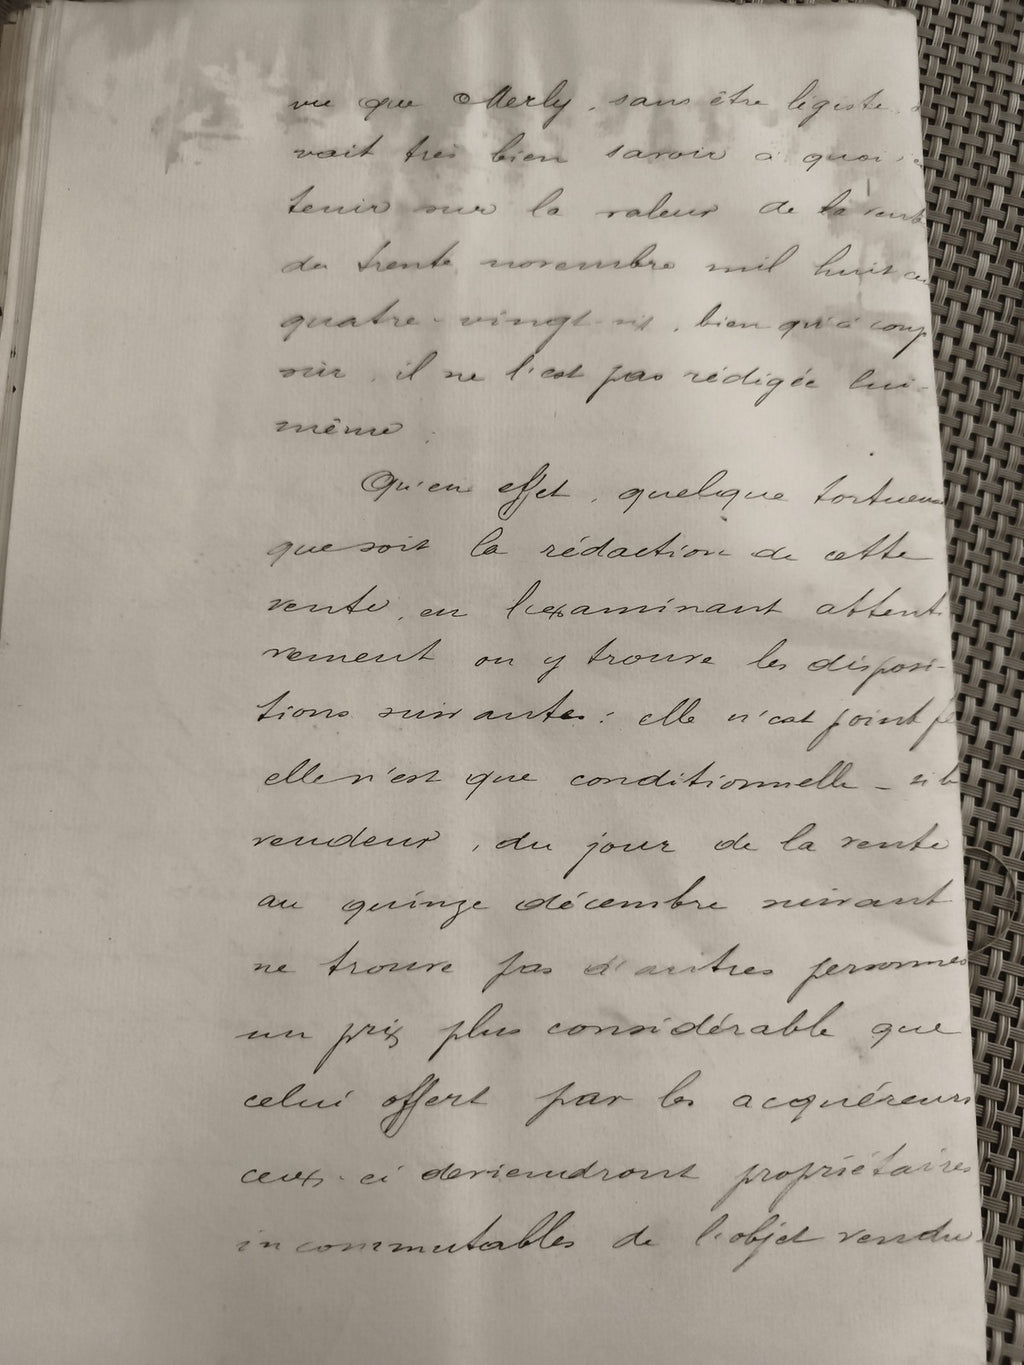 vu que Merly, sans être légiste,
vait très bien savoir à quoi s'en
tenir sur la valeur de la vente
du trente novembre mil huit cen
quatre-vingt-six, bien qu'à coup
sûr, il ne l'est pas rédigée lui-
même.
Qu'en effet, quelque tortueuse
que soit la rédaction de cette
vente, en l'examinant attenti
vement on y trouve les disposi-
tions suivantes: elle n'est point
elle n'est que conditionnelle - si le
vendeur, du jour de la vente
au quinze décembre suivant
ne trouve pas d'autres personnes
un prix plus considérable que
celui offert par les acquéreurs
ceux-ci deviendront propriétaires
incommutables de l'objet vendu.